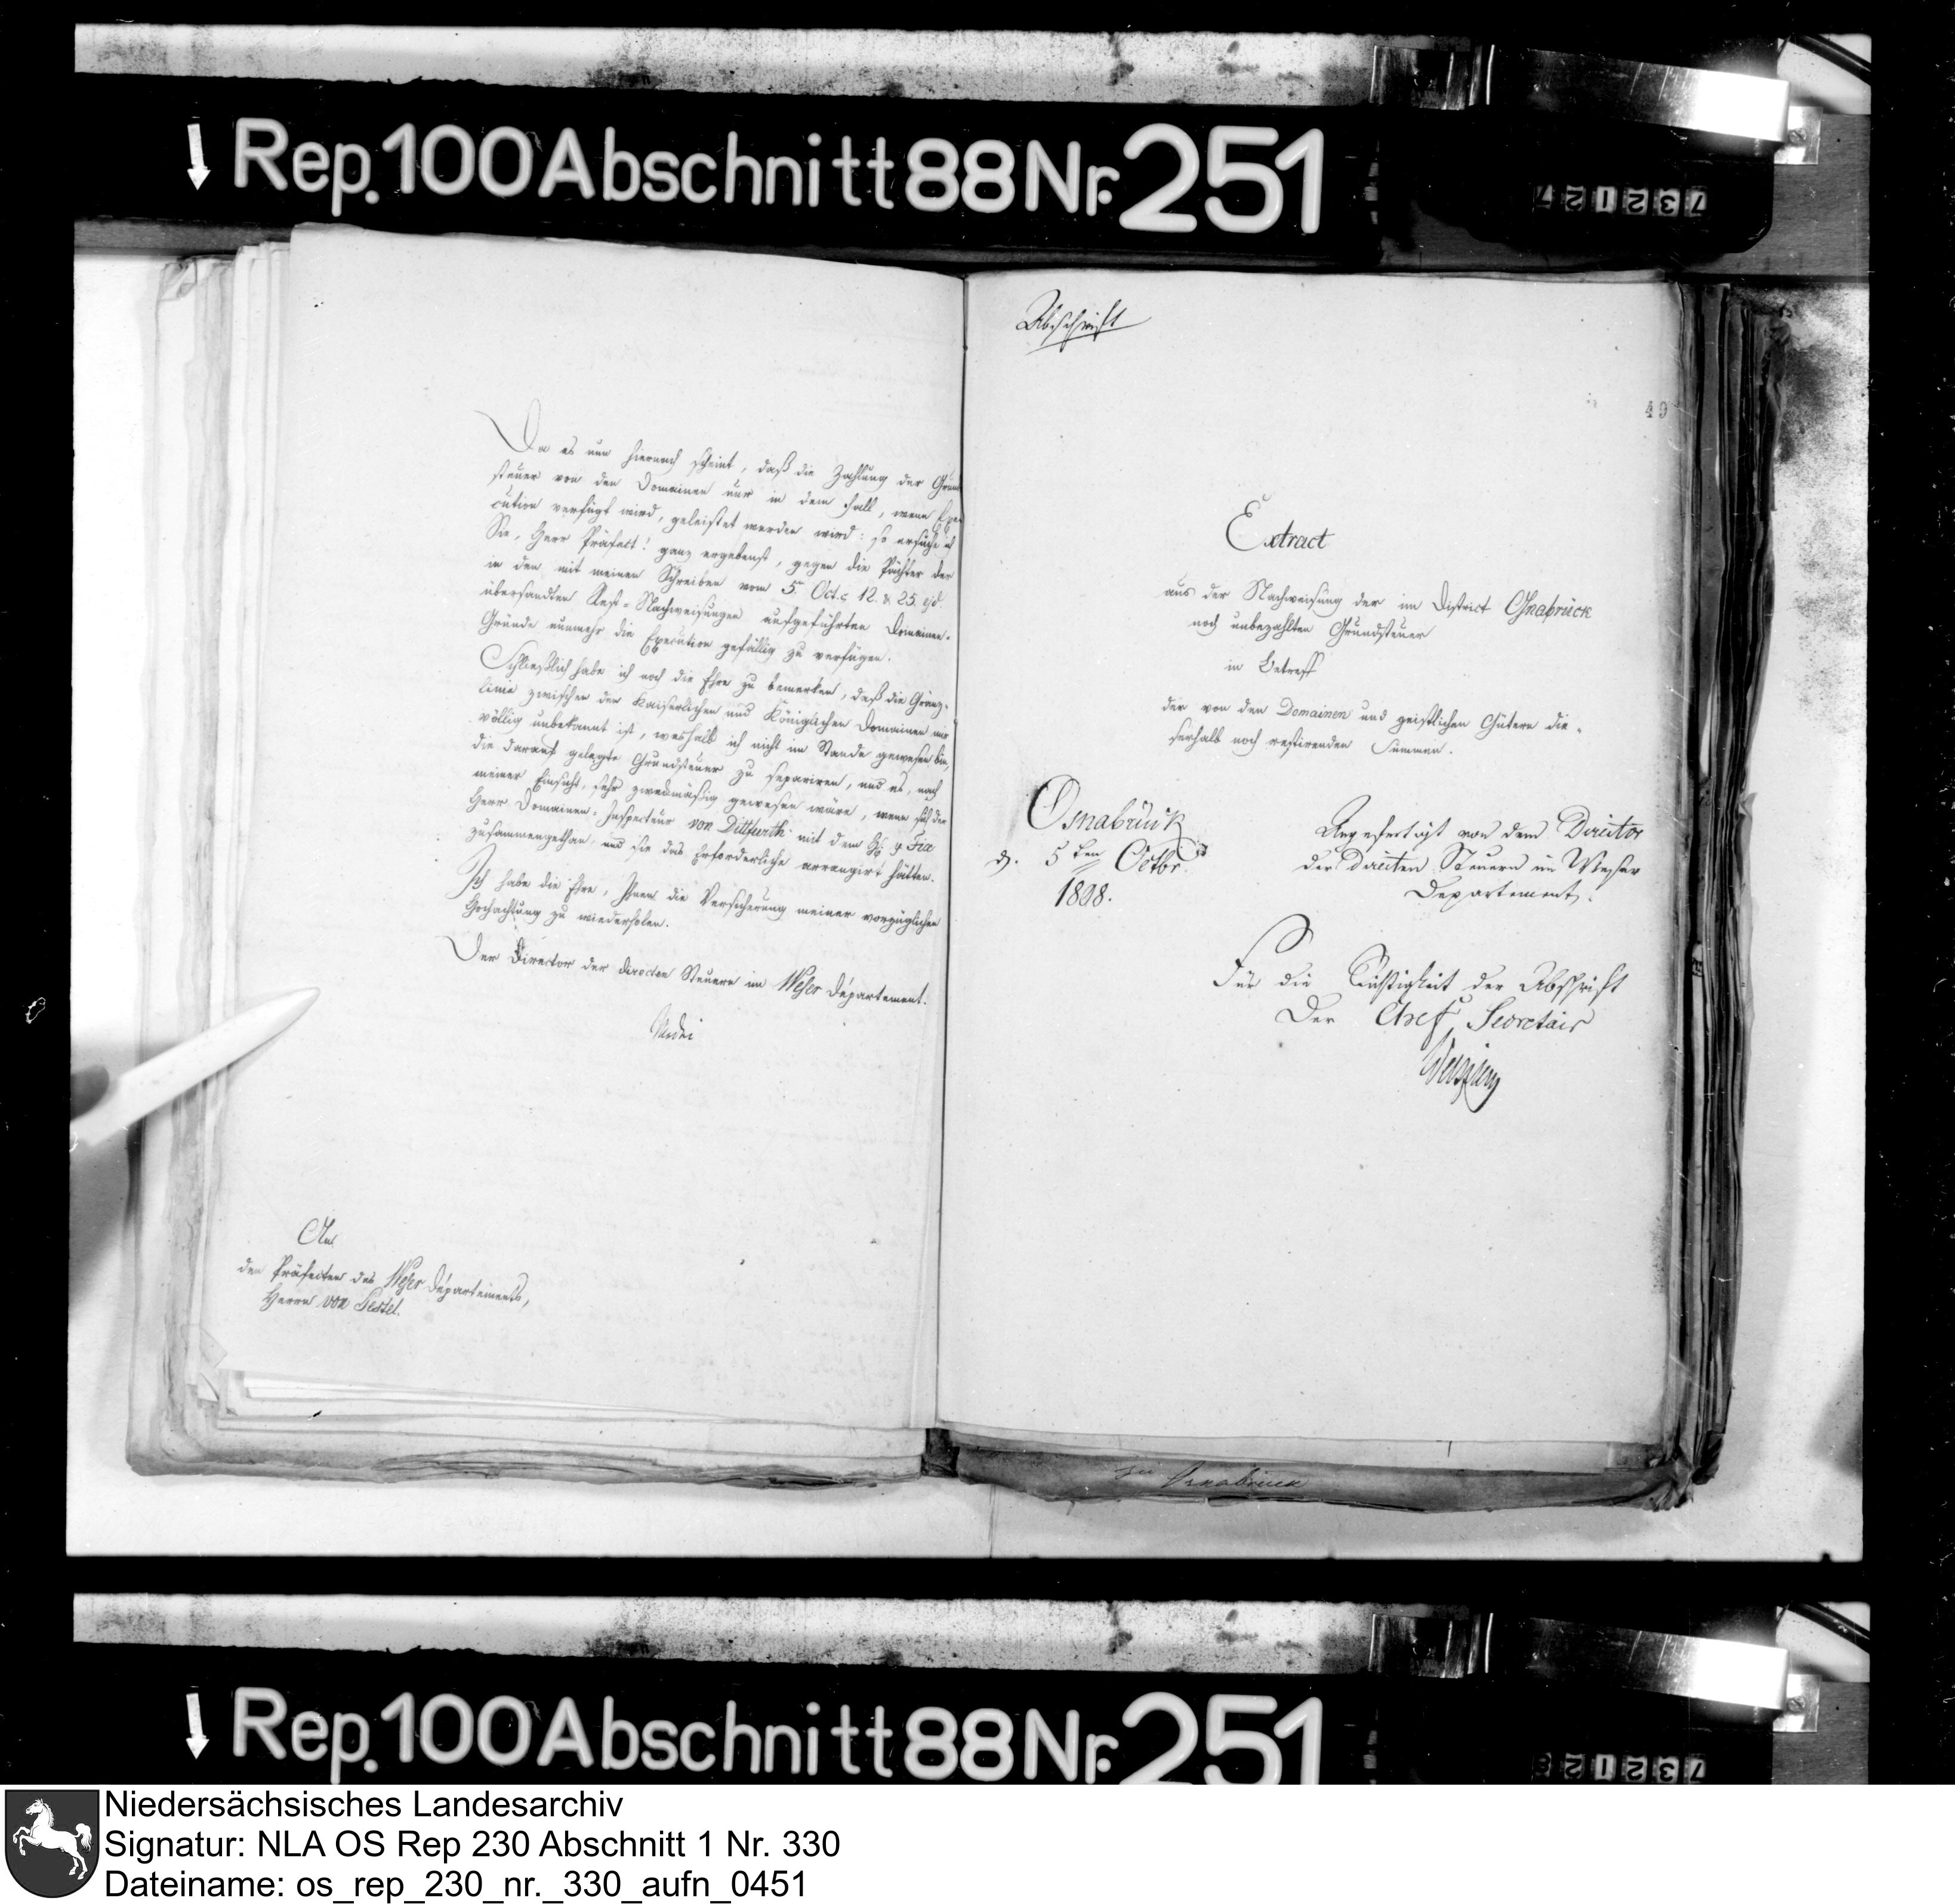 Rep. 100 Abschnitt 88 Nr. 251
732127
Da es nun hiernach scheint, daß die Zahlung der Grund
steuer von den Domainen nur in dem Fall, wenn Exe
cution verfügt wird, geleistet werden wird: so ersuche ich
Sie, Herr Präfect! ganz ergebenst, gegen die Pächter der
in den mit meinen Schreiben vom 5. Oct. c 12. & 25. ejd.
übersandten Rest-Nachweisungen aufgeführten Domainen-
Gründe nunmehr die Execution gefällig zu verfügen.
Schließlich habe ich noch die Ehre zu bemerken, daß die Gränz-
linie zwischen den Kaiserlichen und Königlichen Domainen mir
völlig unbekannt ist, weshalb ich nicht im Stande gewesen bin,
die darauf gelegte Grundsteuer zu separiren, und es, nach
meiner Einsicht, sehr zweckmäßig gewesen wäre, wenn sich der
Herr Domainen-Inspecteur von Dittfurth mit dem
zusammengethan, und sie das Erforderliche arrangirt hätten.
Ich habe die Ehre, Ihnen die Versicherung meiner vorzüglichen
Hochachtung zu wiederholen.
Der Director der directen Steuern im Weser Département.
An
den Präfecten des Weser Départements,
Herrn von Pestel.
Abschrift
49
Extract
aus der Nachweisung der im District Osnabrück
noch unbezahlten Grundsteuer
in Betreff
der von den Domainen und geistlichen Gütern die-
serhalb noch restirenden Summen.
Osnabrück
d. 5ten Octbr.
1808.
Angefertigt von dem Director
der Directen Steuern im Weser
Departement.
Für die Richtigkeit der Abschrift
Der Chef Secretair
Osnabrück
Rep. 100 Abschnitt 88 Nr. 251
732128
Niedersächsisches Landesarchiv
Signatur: NLA OS Rep 230 Abschnitt 1 Nr. 330
Dateiname: os_rep_230_nr._330_aufn_0451